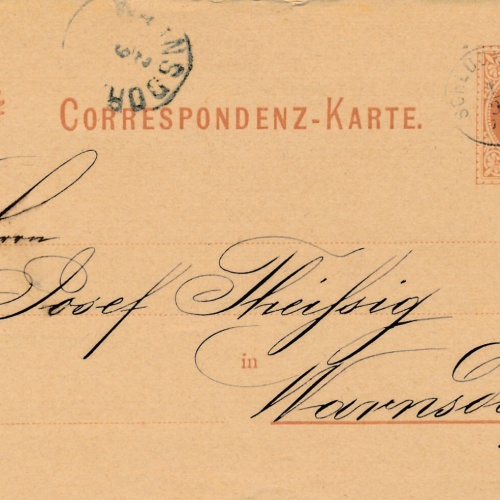 NSDOR
CORRESPONDENZ-KARTE.
Herrn
Josef Theißig
in
Warnsd